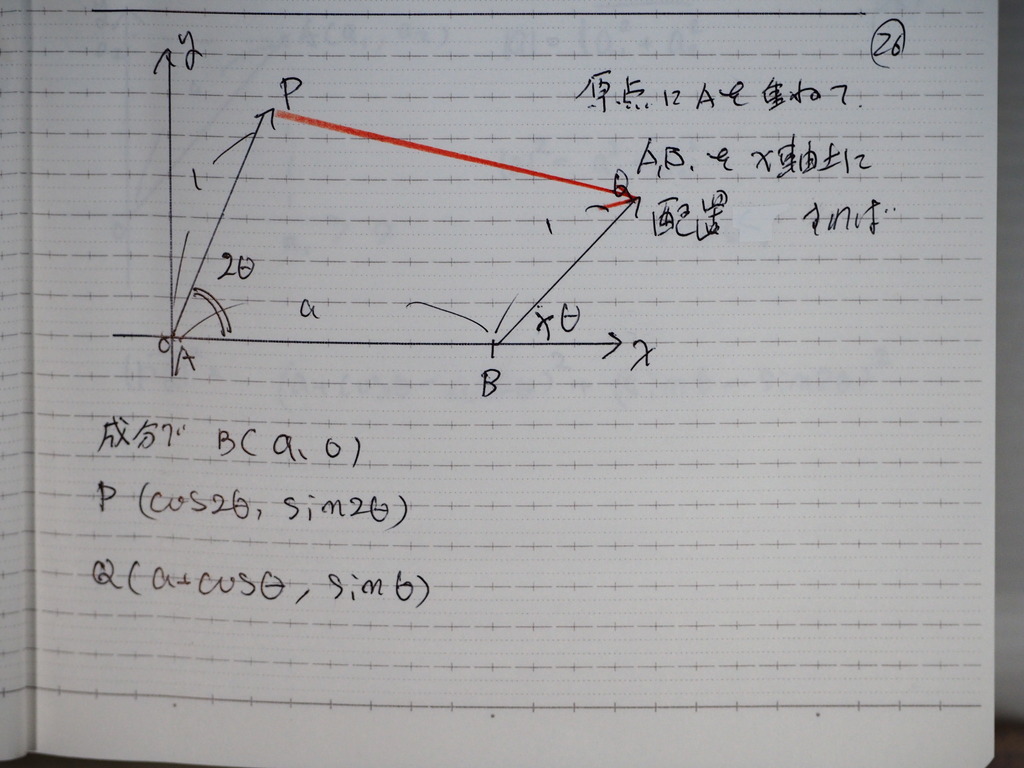 26
y
P
原点にAを重ねて.
A,B,を x軸上に
Q
配置 すれば
1
1
2θ
a
θ
O
A
x
B
成分で B(a, 0)
P (cos2θ, sin2θ)
Q(a+cosθ, sinθ)